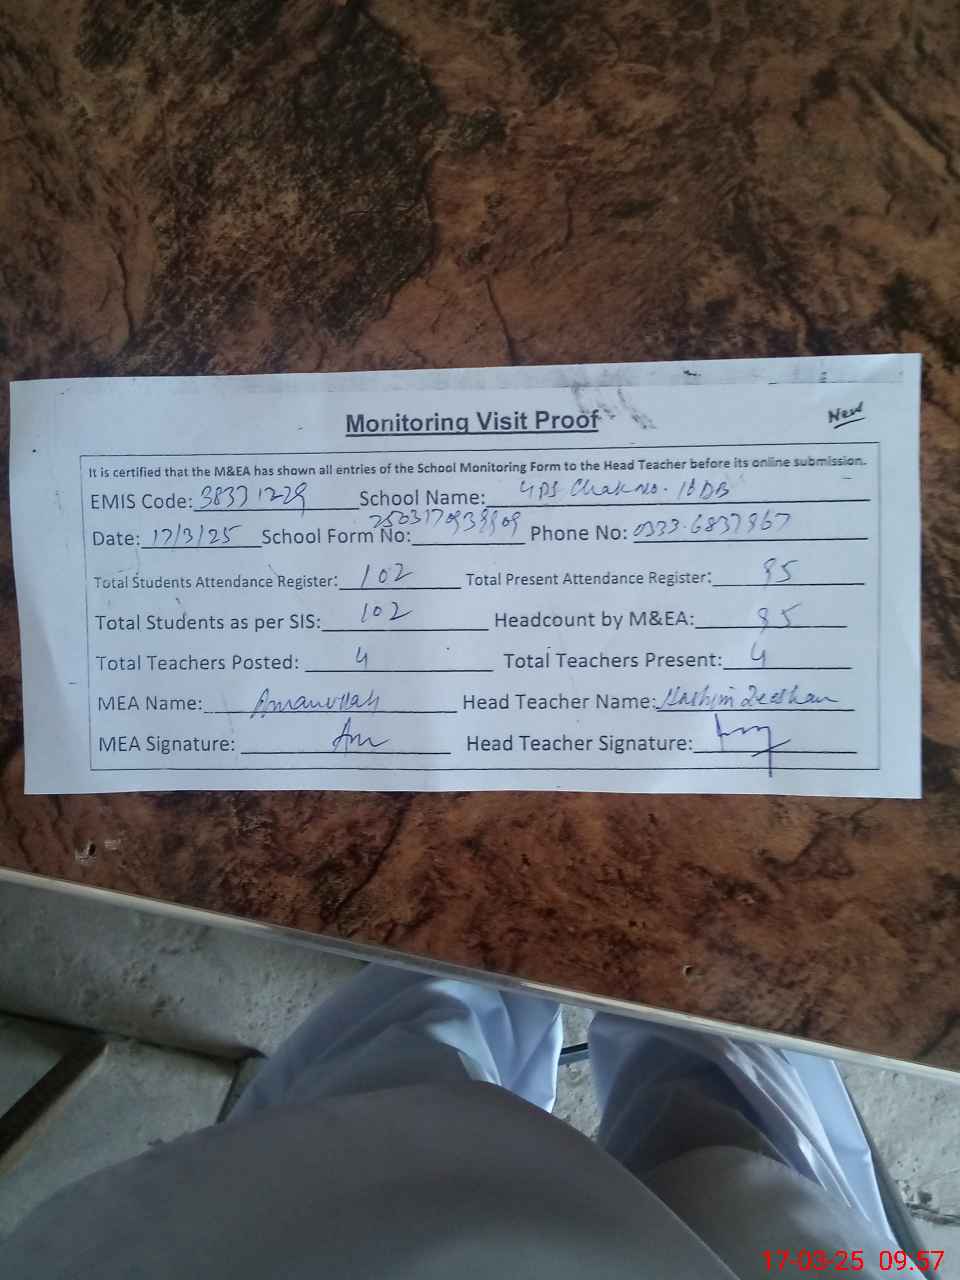 Monitoring Visit Proof
New
It is certified that the M&EA has shown all entries of the School Monitoring Form to the Head Teacher before its online submission.
EMIS Code: 38331229 School Name: GPS Chak No. 16 DB
Date: 17/3/25 School Form No: Phone No: 0333-6837867
Total Students Attendance Register: 102 Total Present Attendance Register: 95
Total Students as per SIS: 102 Headcount by M&EA: 95
Total Teachers Posted: 4 Total Teachers Present: 4
MEA Name: Amanullah Head Teacher Name: Hashim Zeeshan
MEA Signature: Head Teacher Signature:
17-03-25 09.57